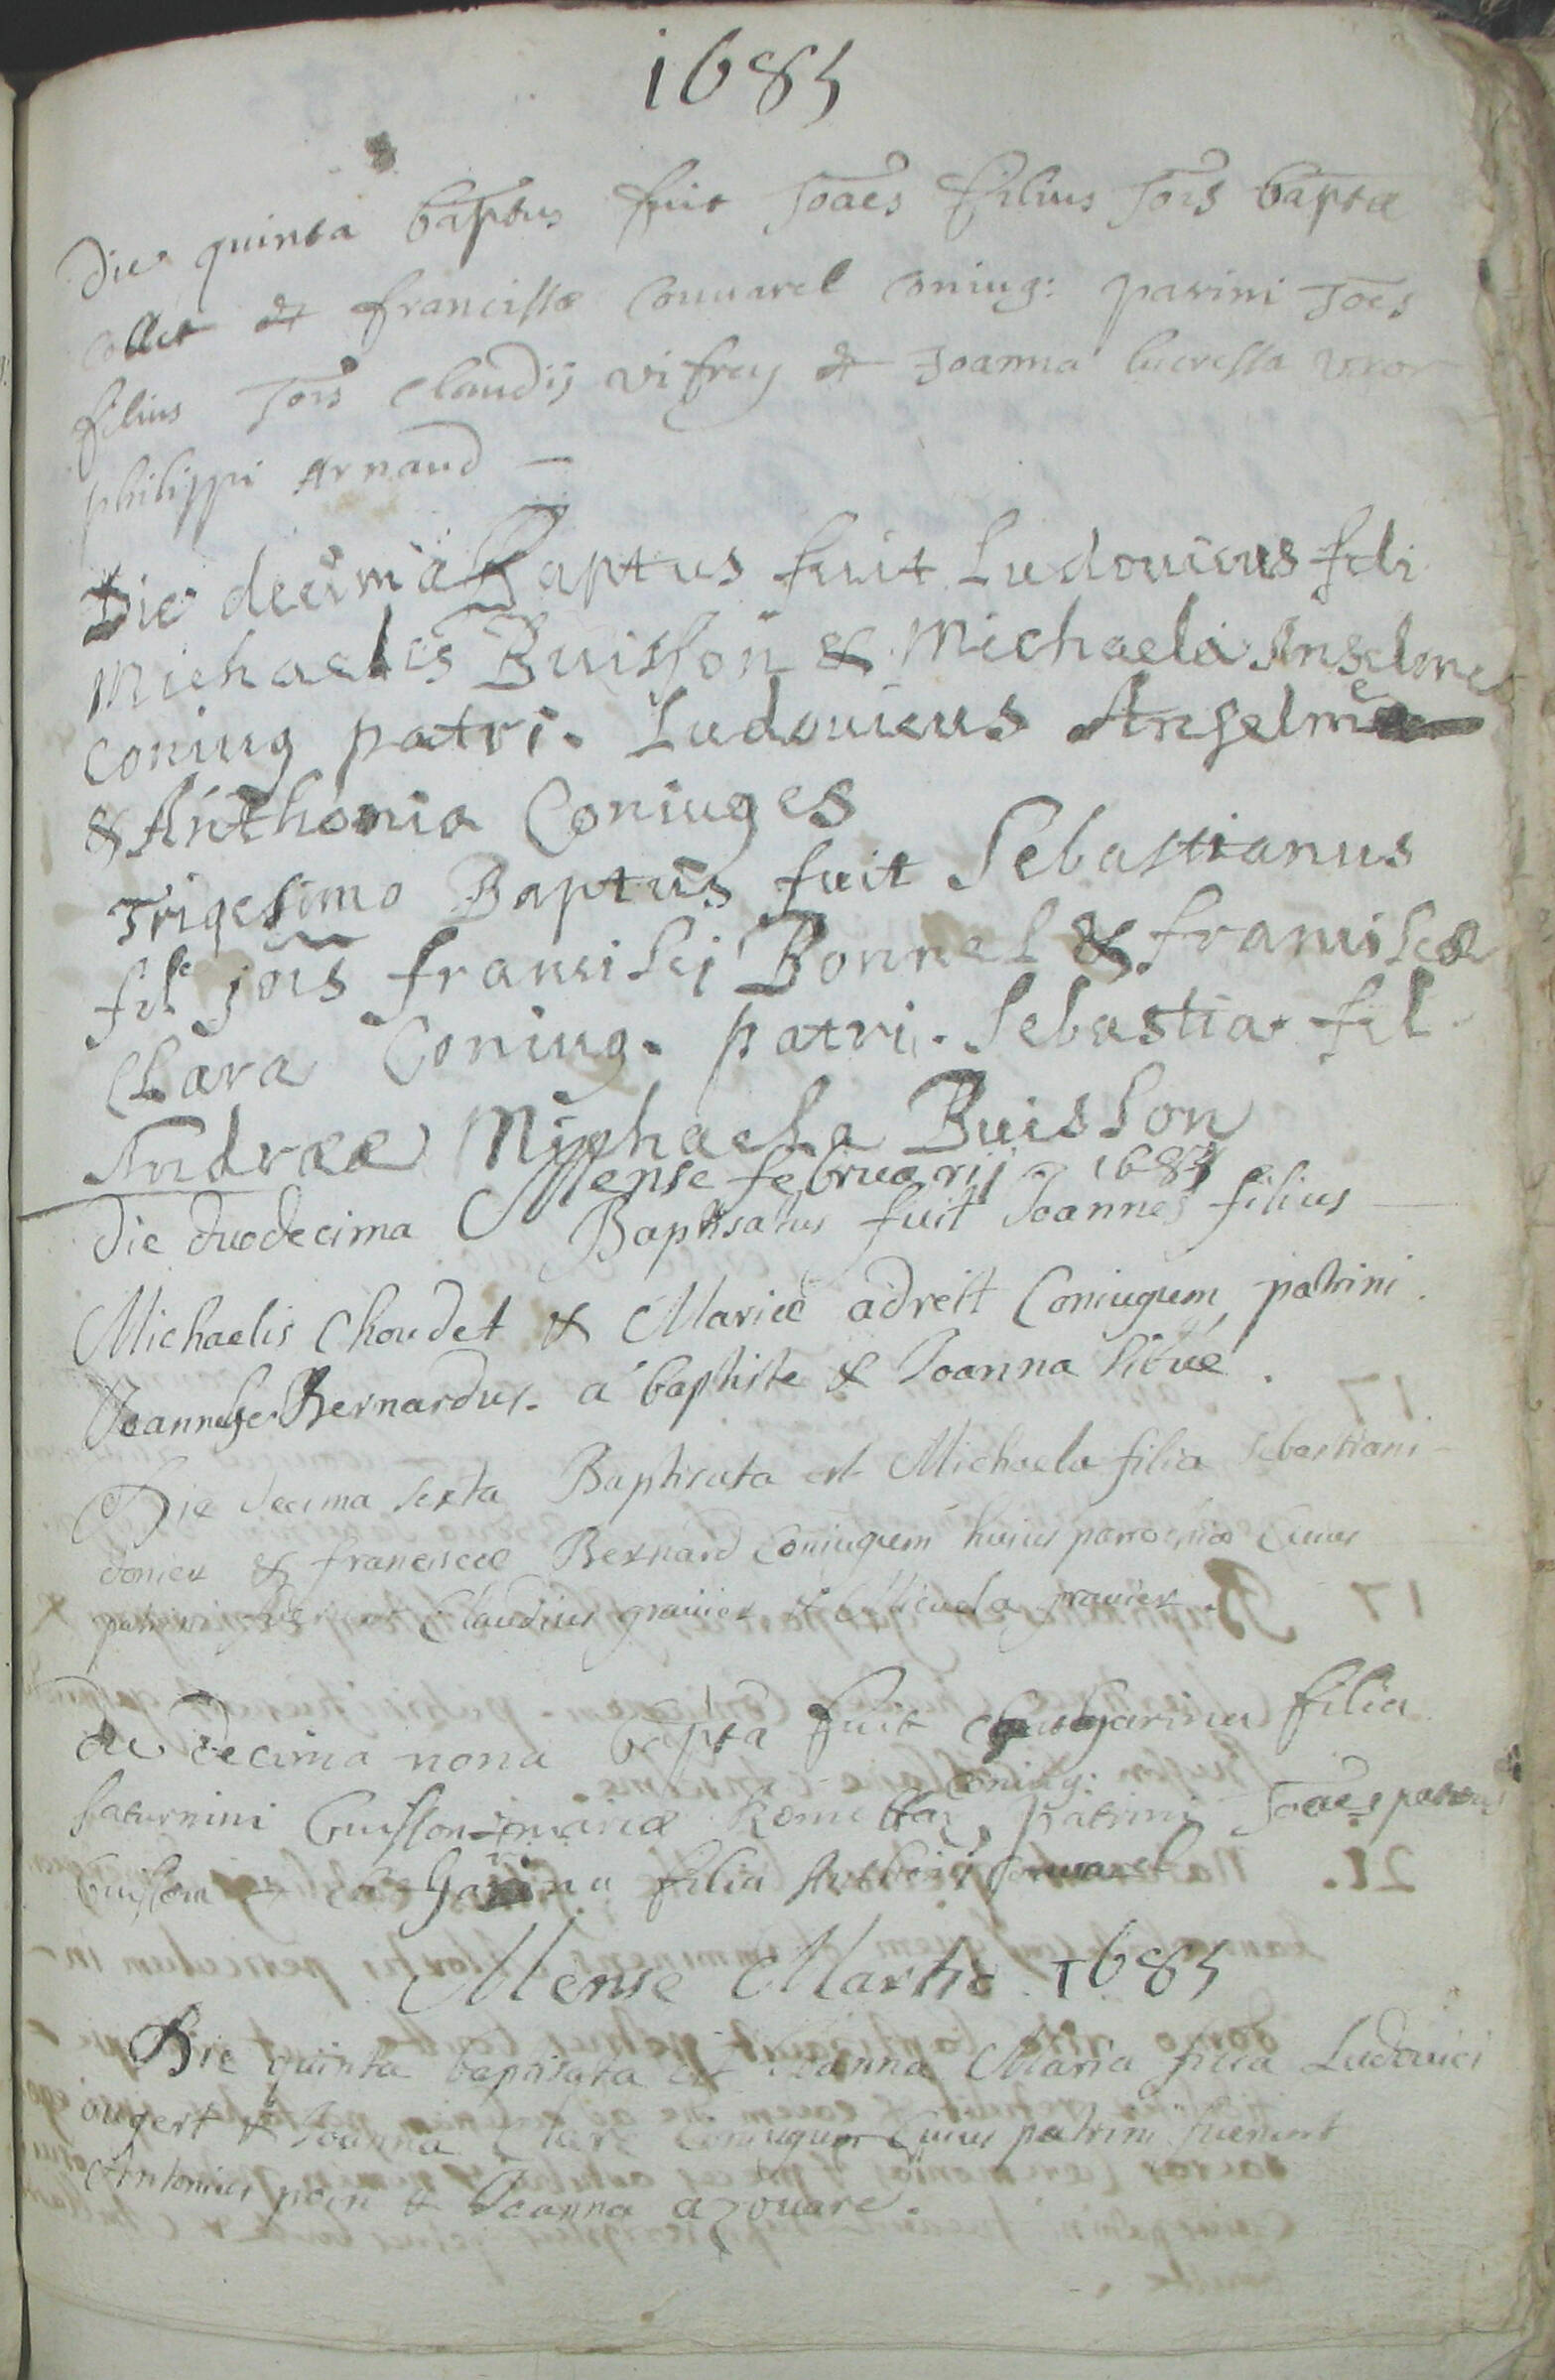 1685
Die quinta baptus fuit Joaes filius Jois baptæ
collet & francissæ Couuarel coniug: patrini Joes
filius Jois Claudij vifrey & Joanna lucressa vxor
philippi Arnaud —
Die decima Baptus fuit Ludouicus fili
Michaelis Buisson & Michaela Anselme
coniug patri. Ludouicus Anselme
& Anthonia Coniuges
Trigesimo Baptus fuit Sebastianus
fil jois francisci Bonnet & franciscæ
Clara Coniug. patri. Sebastia. fil
Andreæ Michaela Buisson
Mense februarij 1685
Die duodecima Baptisatus fuit Joannes filius
Michaelis Choudet & Mariæ adreit Coniugum patrini
Joannes Bernardus. a baptiste & Joanna
Die decima sexta Baptisata est Michaela filia sebastiani
& franciscæ Bernard Coniugum huius parrochiæ Cuius
patrini fuerunt Claudius grauier & Micaela grauier.
die decima nona bapta fuit Catharina filia
coniug:
saturnini buisson mariæ patrini Joaes petrus
buisson & Catharina filia Couuarel
Mense Martio 1685
Die quinta baptisata est Joanna Maria filia Ludouici
ougert & Joanna Clare Coniugum Cuius patrini fuerunt
Antonius & Joanna azouare.